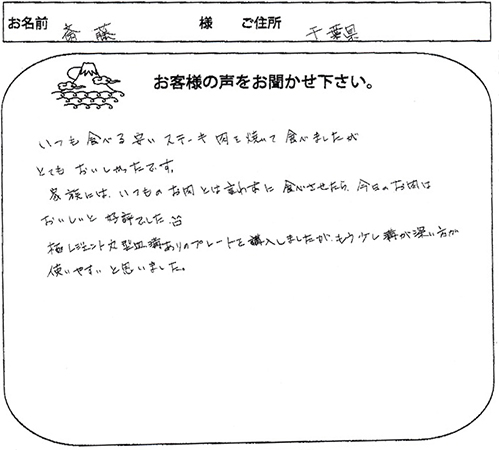 お名前 斎藤 様 ご住所 千葉県
お客様の声をお聞かせ下さい。
いつも食べる安いステーキ肉を焼いて食べましたが
とてもおいしかったです。
家族には、いつものお肉とは言わずに食べさせたら、今日のお肉は
おいしいと好評でした
極レジェンド丸型皿溝ありのプレートを購入しましたが、もう少し溝が深い方が
使いやすいと思いました。